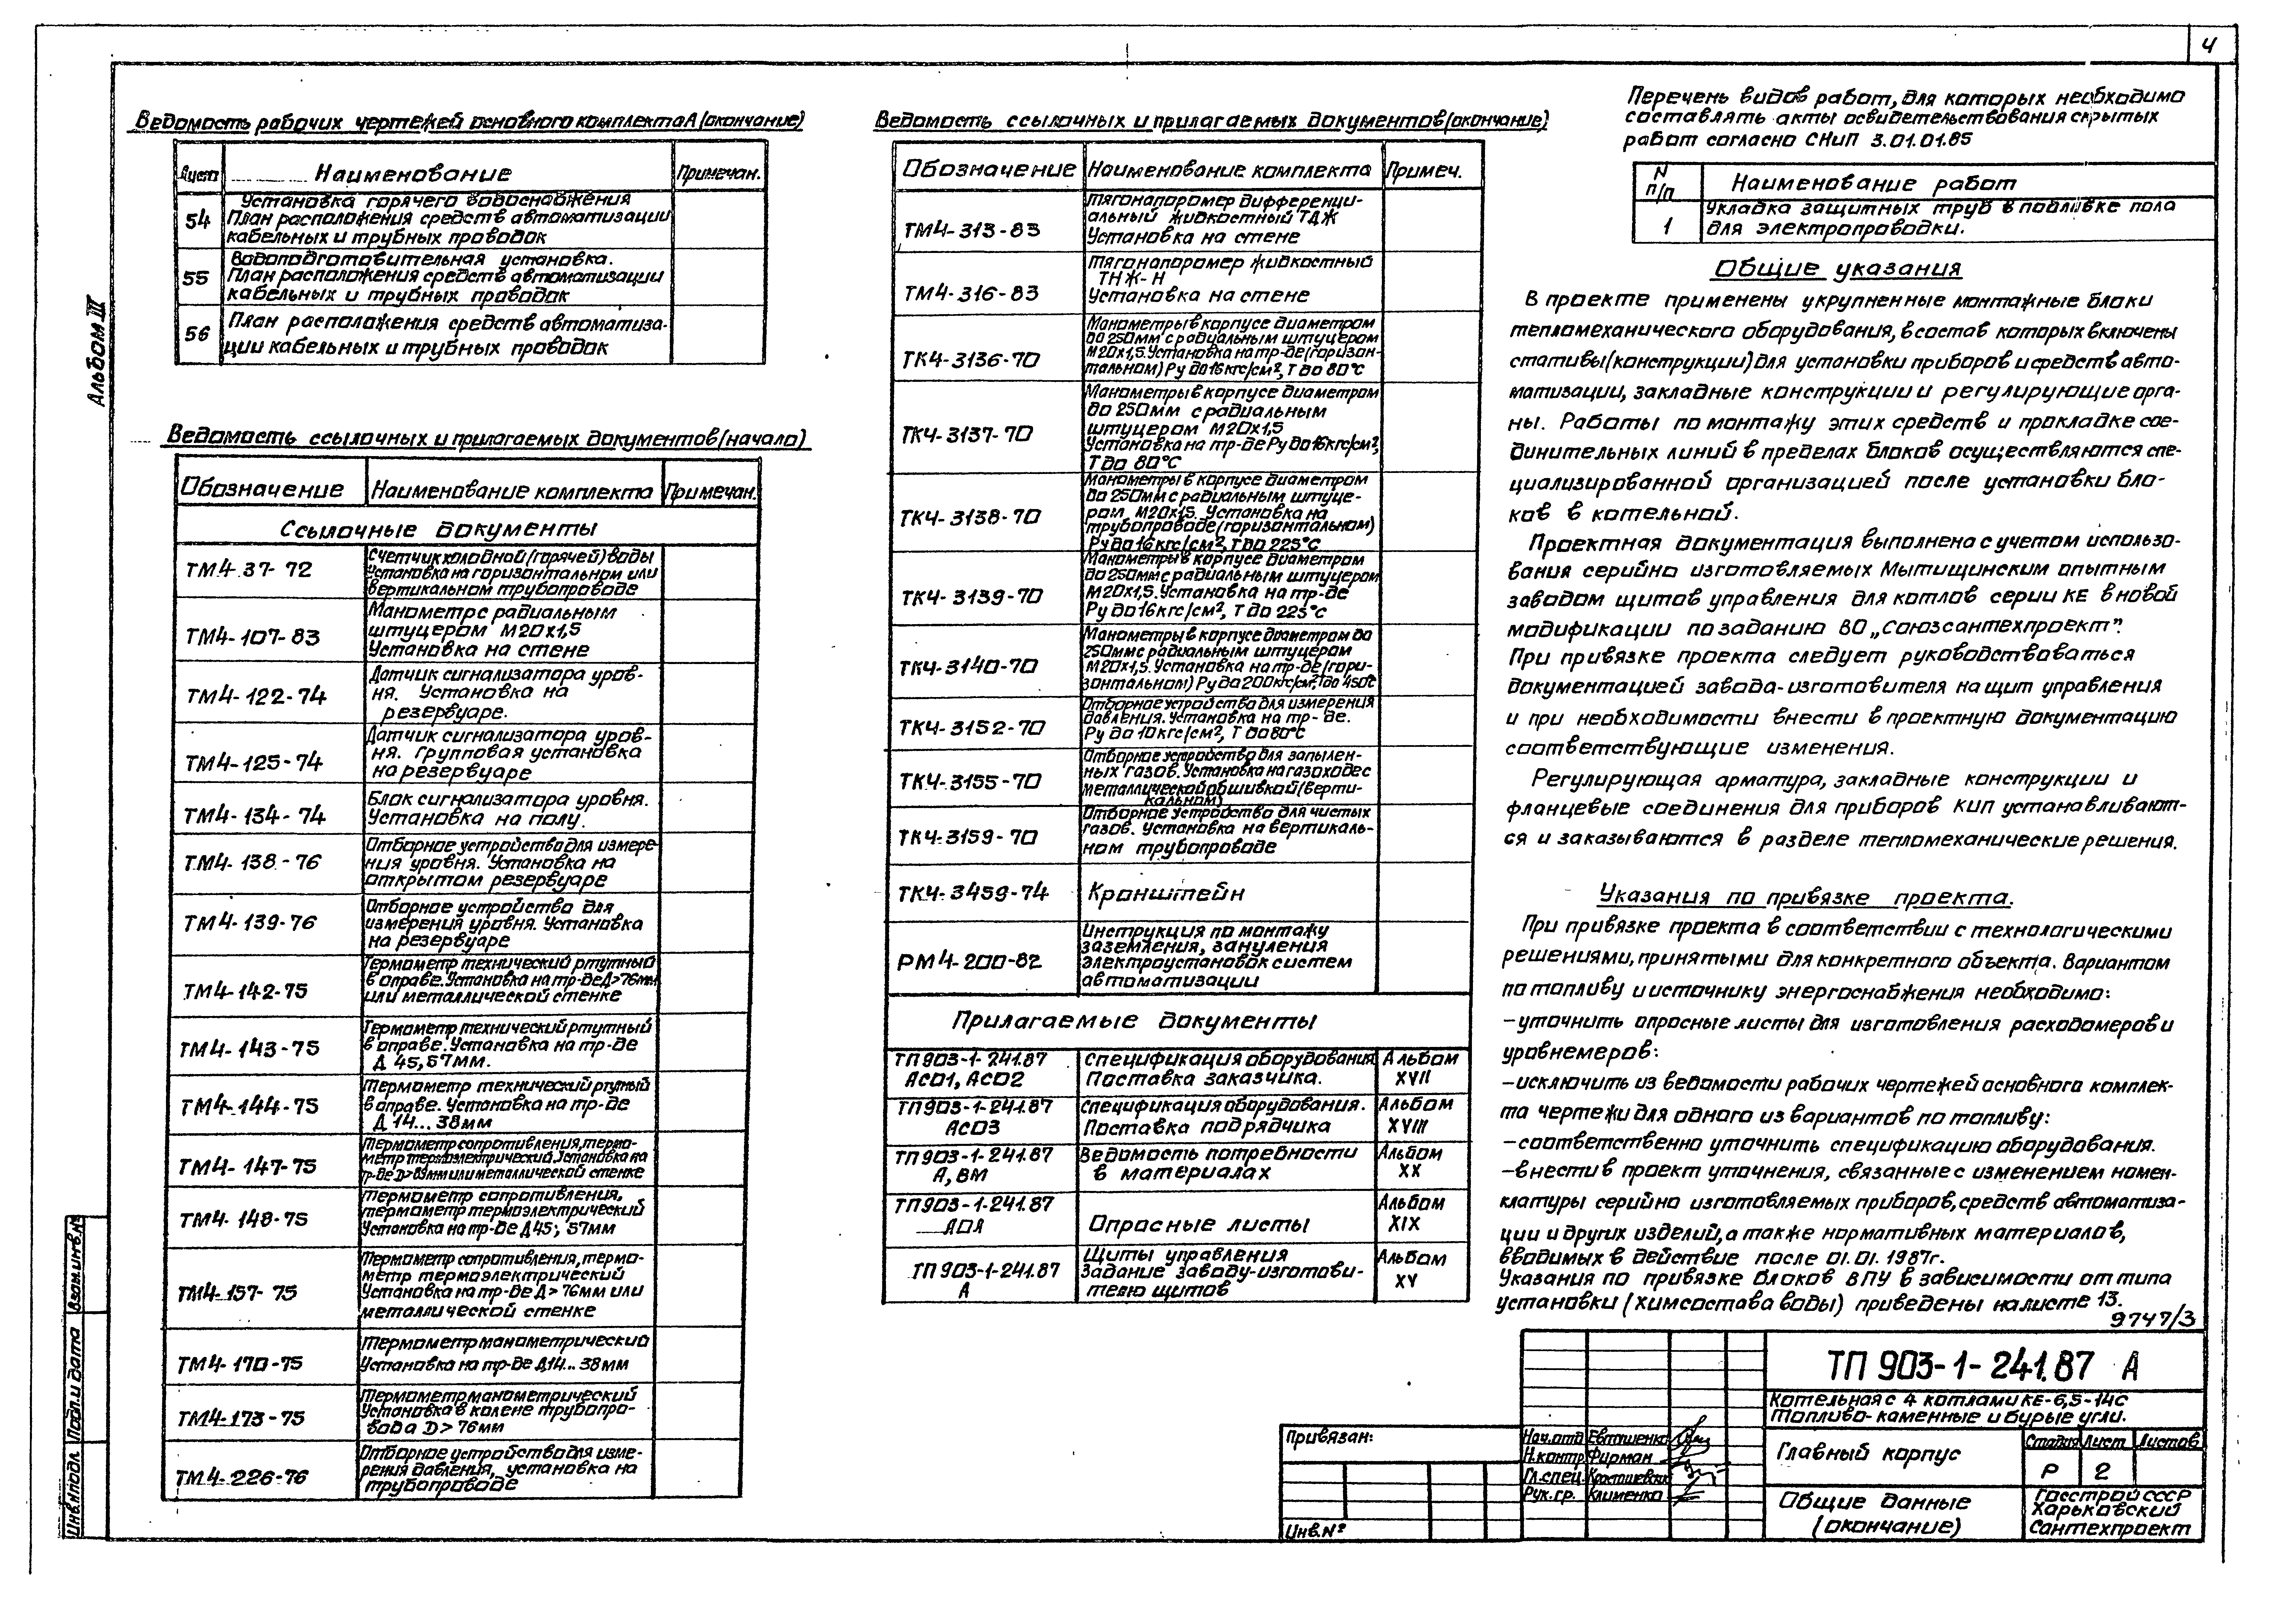 4
Альбом III
Ведомость рабочих чертежей основного комплекта А (окончание)
Лист Наименование Примечан.
Установка горячего водоснабжения
54 План расположения средств автоматизации
кабельных и трубных проводок
Водоподготовительная установка.
55 План расположения средств автоматизации
кабельных и трубных проводок
56 План расположения средств автоматиза-
ции кабельных и трубных проводок
Ведомость ссылочных и прилагаемых документов (начало)
Обозначение Наименование комплекта Примечан.
Ссылочные документы
ТМ4-37-72 Счетчик холодной (горячей) воды
Установка на горизонтальном или
вертикальном трубопроводе
ТМ4-107-83 Манометр с радиальным
штуцером М20х1,5
Установка на стене
ТМ4-122-74 Датчик сигнализатора уров-
ня. Установка на
резервуаре.
ТМ4-125-74 Датчик сигнализатора уров-
ня. Групповая установка
на резервуаре
ТМ4-134-74 Блок сигнализатора уровня.
Установка на полу.
ТМ4-138-76 Отборное устройство для измере-
ния уровня. Установка на
открытом резервуаре
ТМ4-139-76 Отборное устройство для
измерения уровня. Установка
на резервуаре
ТМ4-142-75 Термометр технический ртутный
в оправе. Установка на тр-де Д>76мм
или металлической стенке
ТМ4-143-75 Термометр технический ртутный
в оправе. Установка на тр-де
Д 45, 57мм.
ТМ4-144-75 Термометр технический ртутный
в оправе. Установка на тр-де
Д 14... 38мм
ТМ4-147-75 Термометр сопротивления, термо-
метр термоэлектрический. Установка на
тр-де D>89мм или металлической стенке
ТМ4-148-75 Термометр сопротивления,
термометр термоэлектрический
Установка на тр-де Д45; 57мм
ТМ4-157-75 Термометр сопротивления, термо-
метр термоэлектрический
Установка на тр-де Д>76мм или
металлической стенке
ТМ4-170-75 Термометр манометрический
Установка на тр-де Д14... 38мм
ТМ4-173-75 Термометр манометрический
Установка в колене трубопро-
вода D>76мм
ТМ4-226-76 Отборное устройство для изме-
рения давления, установка на
трубопроводе
Ведомость ссылочных и прилагаемых документов (окончание)
Обозначение Наименование комплекта Примеч.
ТМ4-313-83 Тягонапоромер дифференци-
альный жидкостный ТДЖ
Установка на стене
ТМ4-316-83 Тягонапоромер жидкостный
ТНЖ-Н
Установка на стене
ТК4-3136-70 Манометры в корпусе диаметром
до 250мм с радиальным штуцером
М20х1,5. Установка на тр-де (горизон-
тальном) Ру до 16кгс/см², Т до 80°С
ТК4-3137-70 Манометры в корпусе диаметром
до 250мм с радиальным
штуцером М20х1,5
Установка на тр-де Ру до 16кгс/см²,
Т до 80°С
ТК4-3138-70 Манометры в корпусе диаметром
до 250мм с радиальным штуце-
ром М20х1,5. Установка на
трубопроводе (горизонтальном)
Ру до 16кгс/см², Т до 225°С
ТК4-3139-70 Манометры в корпусе диаметром
до 250мм с радиальным штуцером
М20х1,5. Установка на тр-де
Ру до 16кгс/см², Т до 225°С
ТК4-3140-70 Манометры в корпусе диаметром до
250мм с радиальным штуцером
М20х1,5. Установка на тр-де (гори-
зонтальном) Ру до 200кгс/см², Т до 450°С
ТК4-3152-70 Отборное устройство для измерения
давления. Установка на тр-де.
Ру до 10кгс/см², Т до 80°С
ТК4-3155-70 Отборное устройство для запылен-
ных газов. Установка на газоходе с
металлической обшивкой (верти-
кальном)
ТК4-3159-70 Отборное устройство для чистых
газов. Установка на вертикаль-
ном трубопроводе
ТК4-3459-74 Кронштейн
РМ4-200-82 Инструкция по монтажу
заземления, зануления
электроустановок систем
автоматизации
Прилагаемые документы
ТП 903-1-241.87 Спецификация оборудования Альбом
АСО1, АСО2 Поставка заказчика. XVII
ТП 903-1-241.87 Спецификация оборудования. Альбом
АСО3 Поставка подрядчика XVIII
ТП 903-1-241.87 Ведомость потребности Альбом
А, ВМ в материалах XX
ТП 903-1-241.87 Альбом
АОЛ Опросные листы XIX
Щиты управления Альбом
ТП 903-1-241.87 Задание заводу-изготови-
А телю щитов XV
Перечень видов работ, для которых необходимо
составлять акты освидетельствования скрытых
работ согласно СНиП 3.01.01.85
N п/п Наименование работ
1 Укладка защитных труб в подливке пола
для электропроводки.
Общие указания
В проекте применены укрупненные монтажные блоки
тепломеханического оборудования, в состав которых включены
стативы (конструкции) для установки приборов и средств авто-
матизации, закладные конструкции и регулирующие орга-
ны. Работы по монтажу этих средств и прокладке сое-
динительных линий в пределах блоков осуществляются спе-
циализированной организацией после установки бло-
ков в котельной.
Проектная документация выполнена с учетом использо-
вания серийно изготовляемых Мытищинским опытным
заводом щитов управления для котлов серии КЕ в новой
модификации по заданию ВО „Союзсантехпроект".
При привязке проекта следует руководствоваться
документацией завода-изготовителя на щит управления
и при необходимости внести в проектную документацию
соответствующие изменения.
Регулирующая арматура, закладные конструкции и
фланцевые соединения для приборов КИП устанавливают-
ся и заказываются в разделе тепломеханические решения.
Указания по привязке проекта.
При привязке проекта в соответствии с технологическими
решениями, принятыми для конкретного объекта. Вариантом
по топливу и источнику энергоснабжения необходимо:
-уточнить опросные листы для изготовления расходомеров и
уровнемеров:
-исключить из ведомости рабочих чертежей основного комплек-
та чертежи для одного из вариантов по топливу:
-соответственно уточнить спецификацию оборудования.
-внести в проект уточнения, связанные с изменением номен-
клатуры серийно изготовляемых приборов, средств автоматиза-
ции и других изделий, а также нормативных материалов,
вводимых в действие после 01.01.1987г.
Указания по привязке блоков ВПУ в зависимости от типа
установки (химсостава воды) приведены на листе 13.
9747/3
ТП 903-1-241.87 А
Котельная с 4 котлами КЕ-6,5-14С
Топливо-каменные и бурые угли.
Привязан:
Инв.№
Нач.отд Евтошенко
Н.контр Фирман
Гл.спец.
Рук.гр. Клименко
Главный корпус
Стадия Лист Листов
Р 2
Общие данные
(окончание)
Госстрой СССР
Харьковский
Сантехпроект
Инв.№подл. Подп. и дата Взам.инв.№